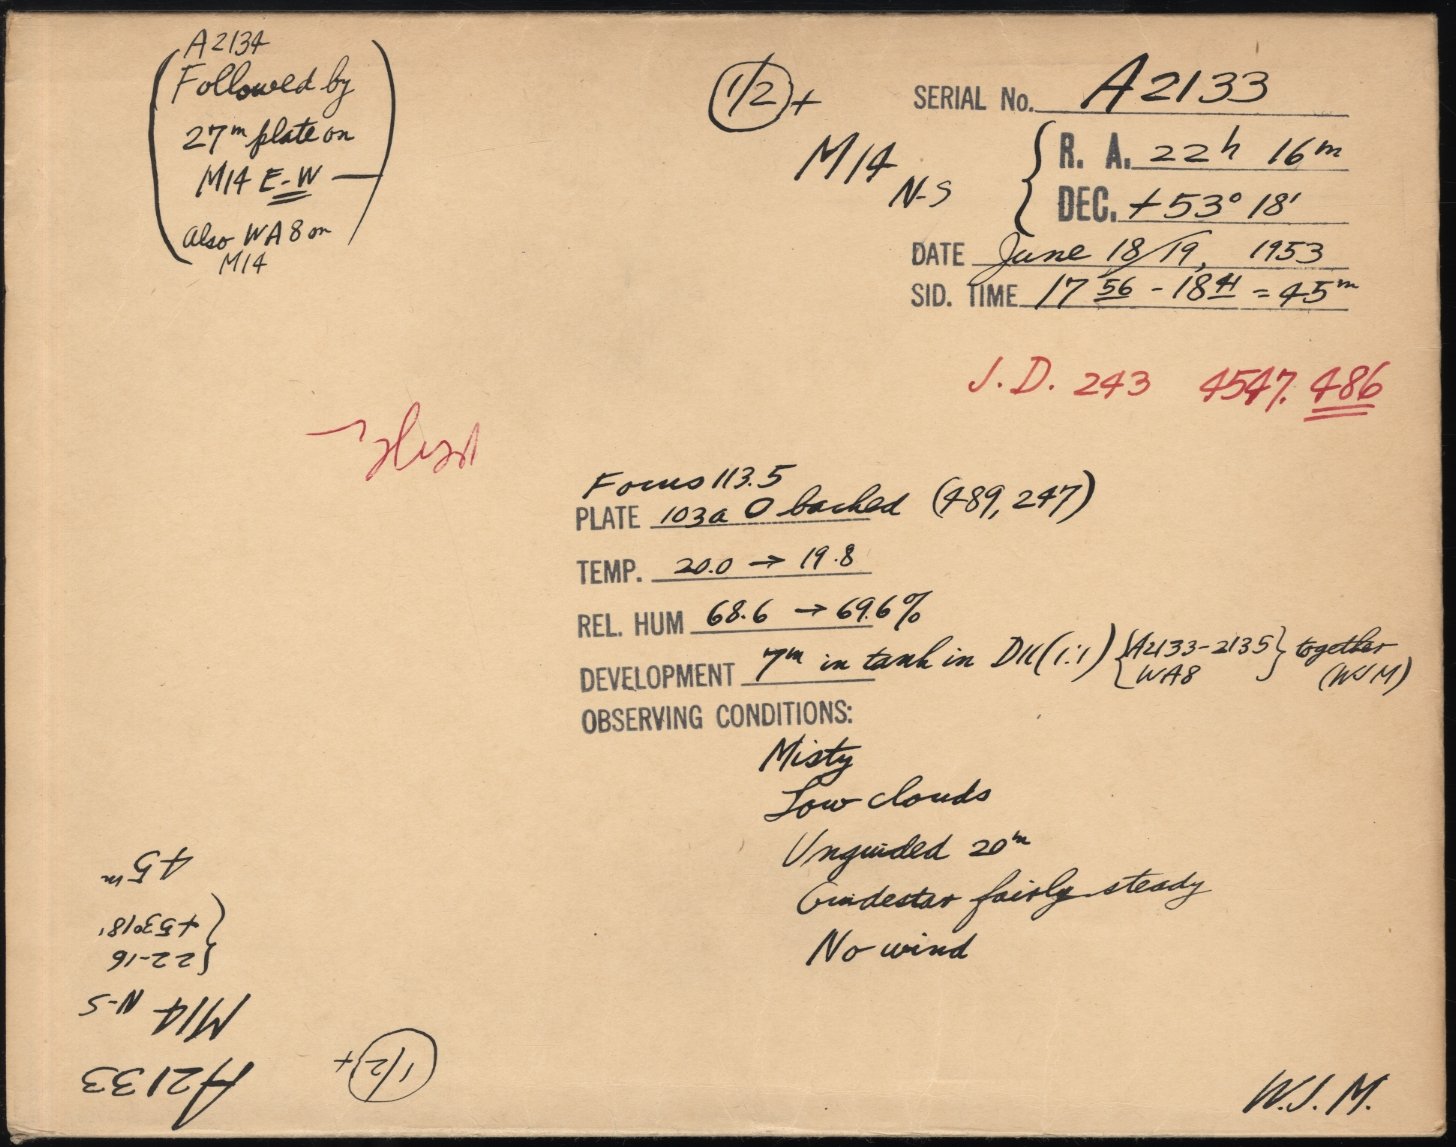 A2134
Followed by
27m plate on
M14 E-W —
also WA8 on
M14
1/2 +
M14
N-S
SERIAL No. A2133
R. A. 22h 16m
DEC. +53° 18'
DATE June 18/19, 1953
SID. TIME 17 56 - 18 41 = 45m
J. D. 243 4547.486
Focus 113.5
PLATE 103a O backed (489, 247)
TEMP. 20.0 → 19.8
REL. HUM 68.6 → 69.6%
DEVELOPMENT 7m in tank in D11 (1:1) {A2133-2135 WA8} together
(WJM)
OBSERVING CONDITIONS:
Misty
Low clouds
Unguided 20m
Guidestar fairly steady
No wind
W.J.M.
A2133
1/2 +
M14 N-S
22-16
+53°18'
45m